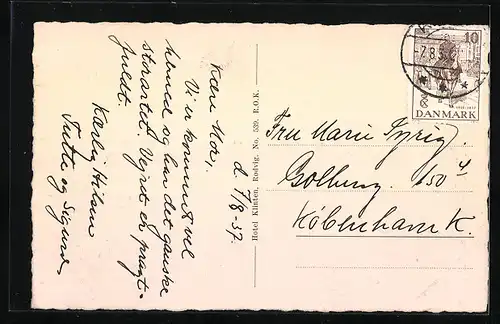 d. 7/8-37.
Kære Mor,
Vi er kommet vel
herned og har det ganske
storartet. Vejret er pragt-
fuldt.
Kærlig Hilsen
Tutte og Sigurd
Hotel Klinten, Rødvig. No. 539. R.O.K.
10
DANMARK
-7.8.37
Fru Marie
150
København K.